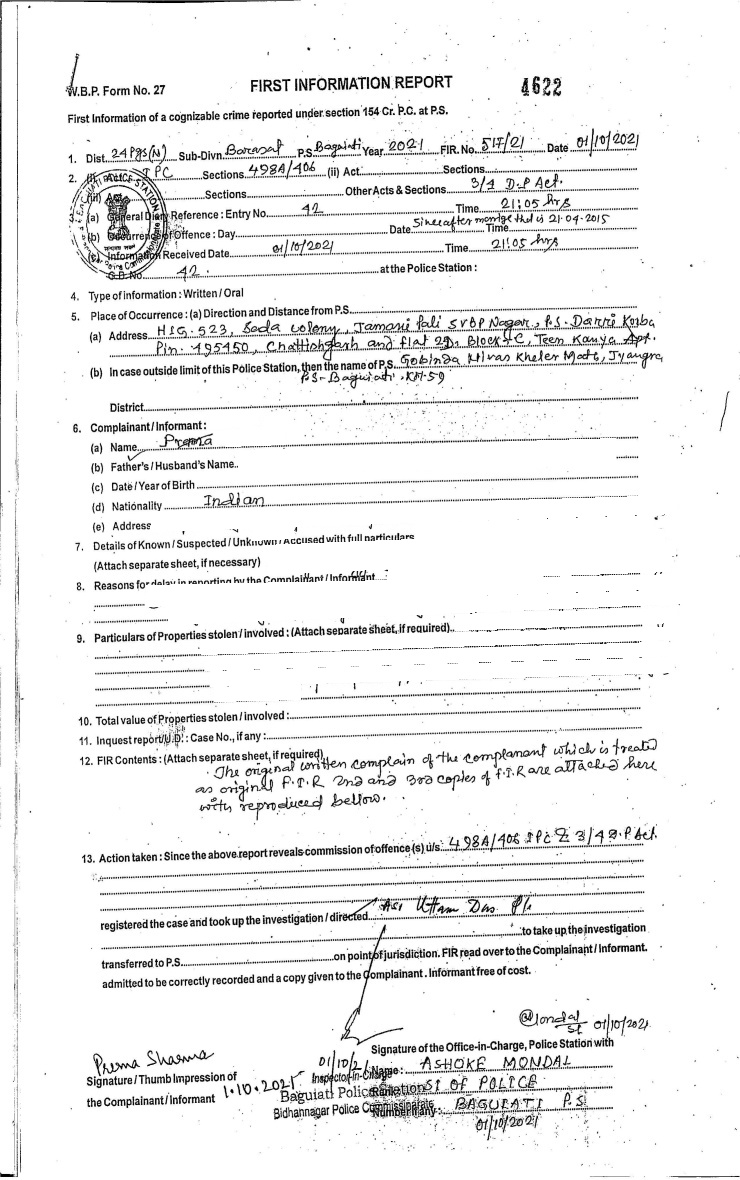 W.B.P. Form No. 27
FIRST INFORMATION REPORT
4622
First Information of a cognizable crime reported under section 154 Cr. P.C. at P.S.
1. Dist. 24 Pgs (N) Sub-Divn. Barasat P.S. Baguiati Year 2021 FIR. No. 517/21 Date 01/10/2021
2. (i) Act IPC Sections 498A/406 (ii) Act Sections
(iii) Act Sections Other Acts & Sections 3/4 D.P Act.
(a) General Diary Reference : Entry No. 42 Time 21:05 hrs
(b) Occurrence of Offence : Day Date Since after that is 21-04-2015 Time
(c) Information Received Date 01/10/2021 Time 21:05 hrs
G.D. No. 42. at the Police Station :
4. Type of information : Written / Oral
5. Place of Occurrence : (a) Direction and Distance from P.S.
(a) Address HIG-523, Sada colony, Jamani Pali SVBP Nagar, P.S. Darri Korba
Pin. 495450, Chattishgarh and flat 2D, Block-C, Teen Kanya Apt.
(b) In case outside limit of this Police Station, then the name of P.S. Gobinda Nivas Kheler Math, Jyangra
P.S- Baguiati, KM-59
District
6. Complainant / Informant :
(a) Name Prema
(b) Father's / Husband's Name..
(c) Date / Year of Birth
(d) Nationality Indian
(e) Address
7. Details of Known / Suspected / Unknown / Accused with full particulars
(Attach separate sheet, if necessary)
8. Reasons for delay in reporting by the Complaintant / Informant
9. Particulars of Properties stolen / involved : (Attach separate sheet, if required)..
10. Total value of Properties stolen / involved :
11. Inquest report / U.D. : Case No., if any :
12. FIR Contents : (Attach separate sheet, if required)
The original written complain of the complanant which is treated
as original F.I.R 2nd and 3rd copies of F.I.R are attached here
with reproduced bellow.
13. Action taken : Since the above report reveals commission of offence (s) u/s. 498A/406 IPC & 3/4 D.P Act.
registered the case and took up the investigation / directed ASI Uttam Das
to take up the investigation
transferred to P.S. on point of jurisdiction. FIR read over to the Complainant / Informant.
admitted to be correctly recorded and a copy given to the Complainant. Informant free of cost.
01/10/2021
Signature of the Office-in-Charge, Police Station with
Prema Sharma
01/10/21
Name : ASHOKE MONDAL
Signature / Thumb Impression of
the Complainant / Informant 1.10.2021
Inspector-in-Charge
Baguiati Police Station
Bidhannagar Police Commissionerate
SI OF POLICE
Number if any : BAGUIATI P.S
01/10/2021